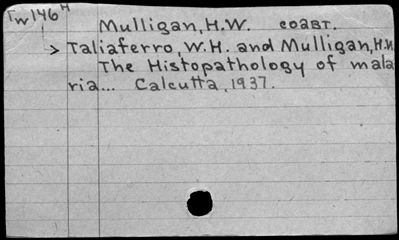 Tw146H
Mulligan, H.W. соавт.
> Taliaferro, W.H. and Mulligan, H.W.
The Histopathology of mala
ria... Calcutta, 1937.